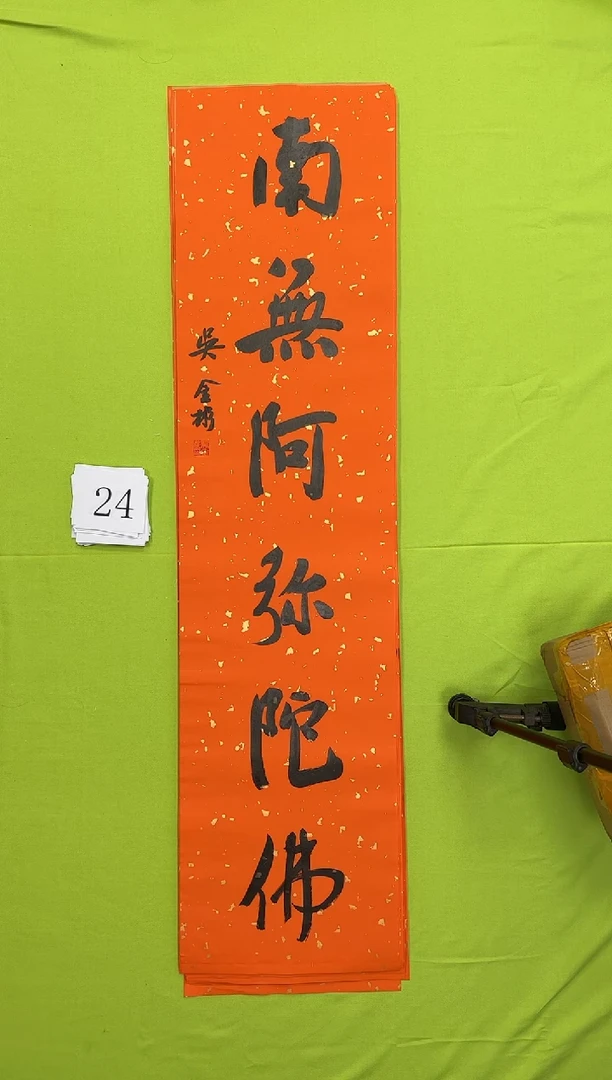 南無阿弥陀佛
吳金彬
24